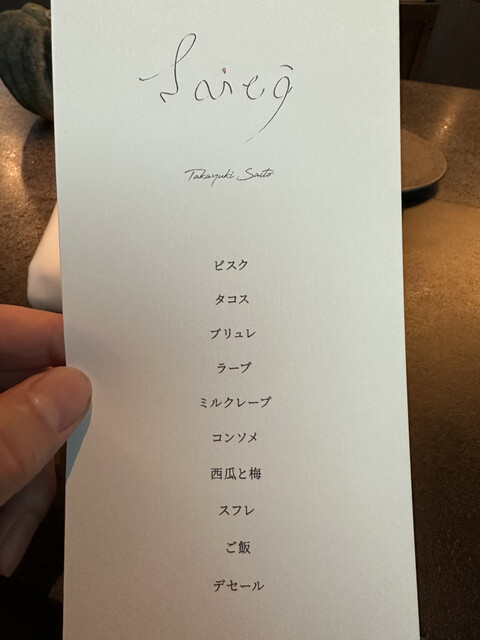 Takayuki Saito
ビスク
タコス
ブリュレ
ラープ
ミルクレープ
コンソメ
西瓜と梅
スフレ
ご飯
デセール